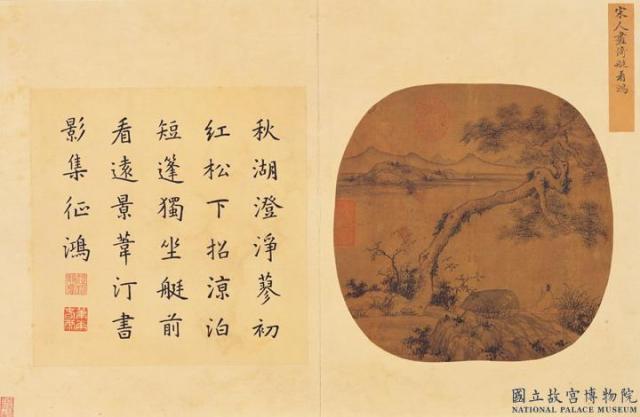 宋人畫艇看鴻
秋湖澄淨蓼初
紅松下招涼泊
短篷獨坐艇前
看遠景葦汀書
影集征鴻
國立故宮博物院
NATIONAL PALACE MUSEUM